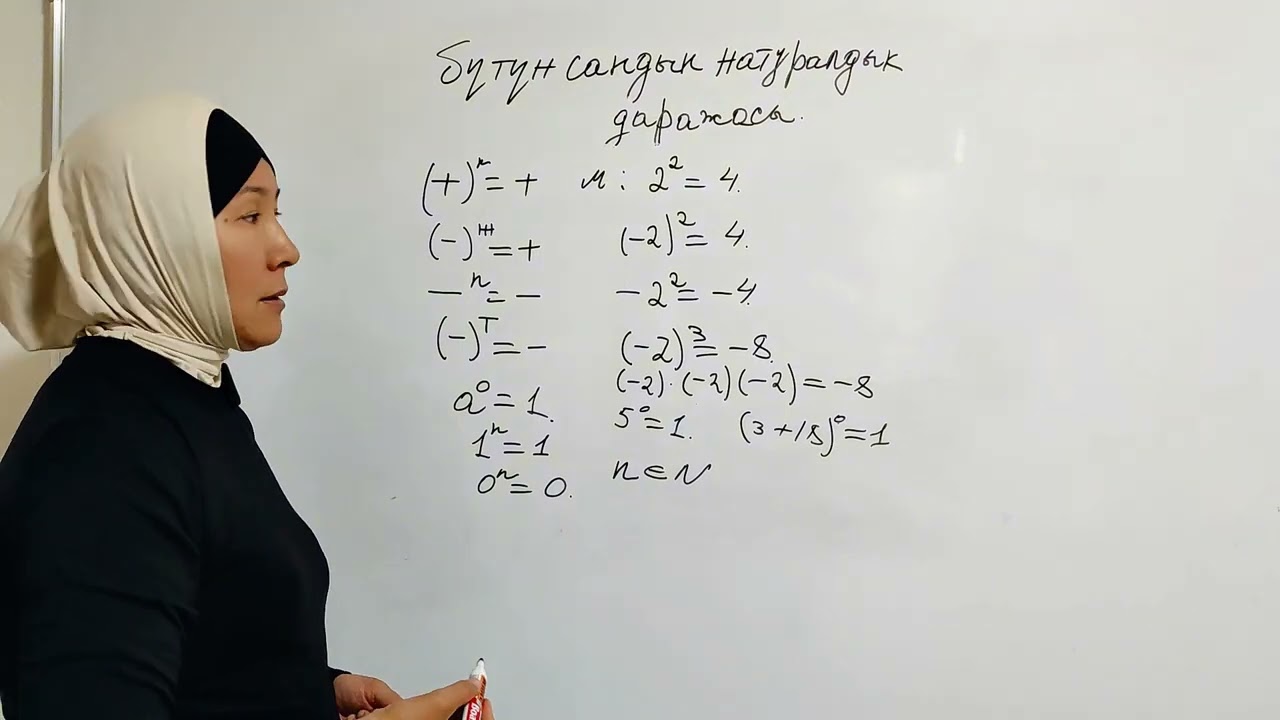 Бүтүн сандын натуралдык
даражасы.
(+)ⁿ = + м: 2² = 4.
(-)ᴴ = + (-2)² = 4.
-ⁿ = - -2² = -4.
(-)ᵀ = - (-2)³ = -8.
(-2)·(-2)(-2) = -8
a⁰ = 1. 5⁰ = 1. (3+18)⁰ = 1
1ⁿ = 1
0ⁿ = 0. n ∈ N